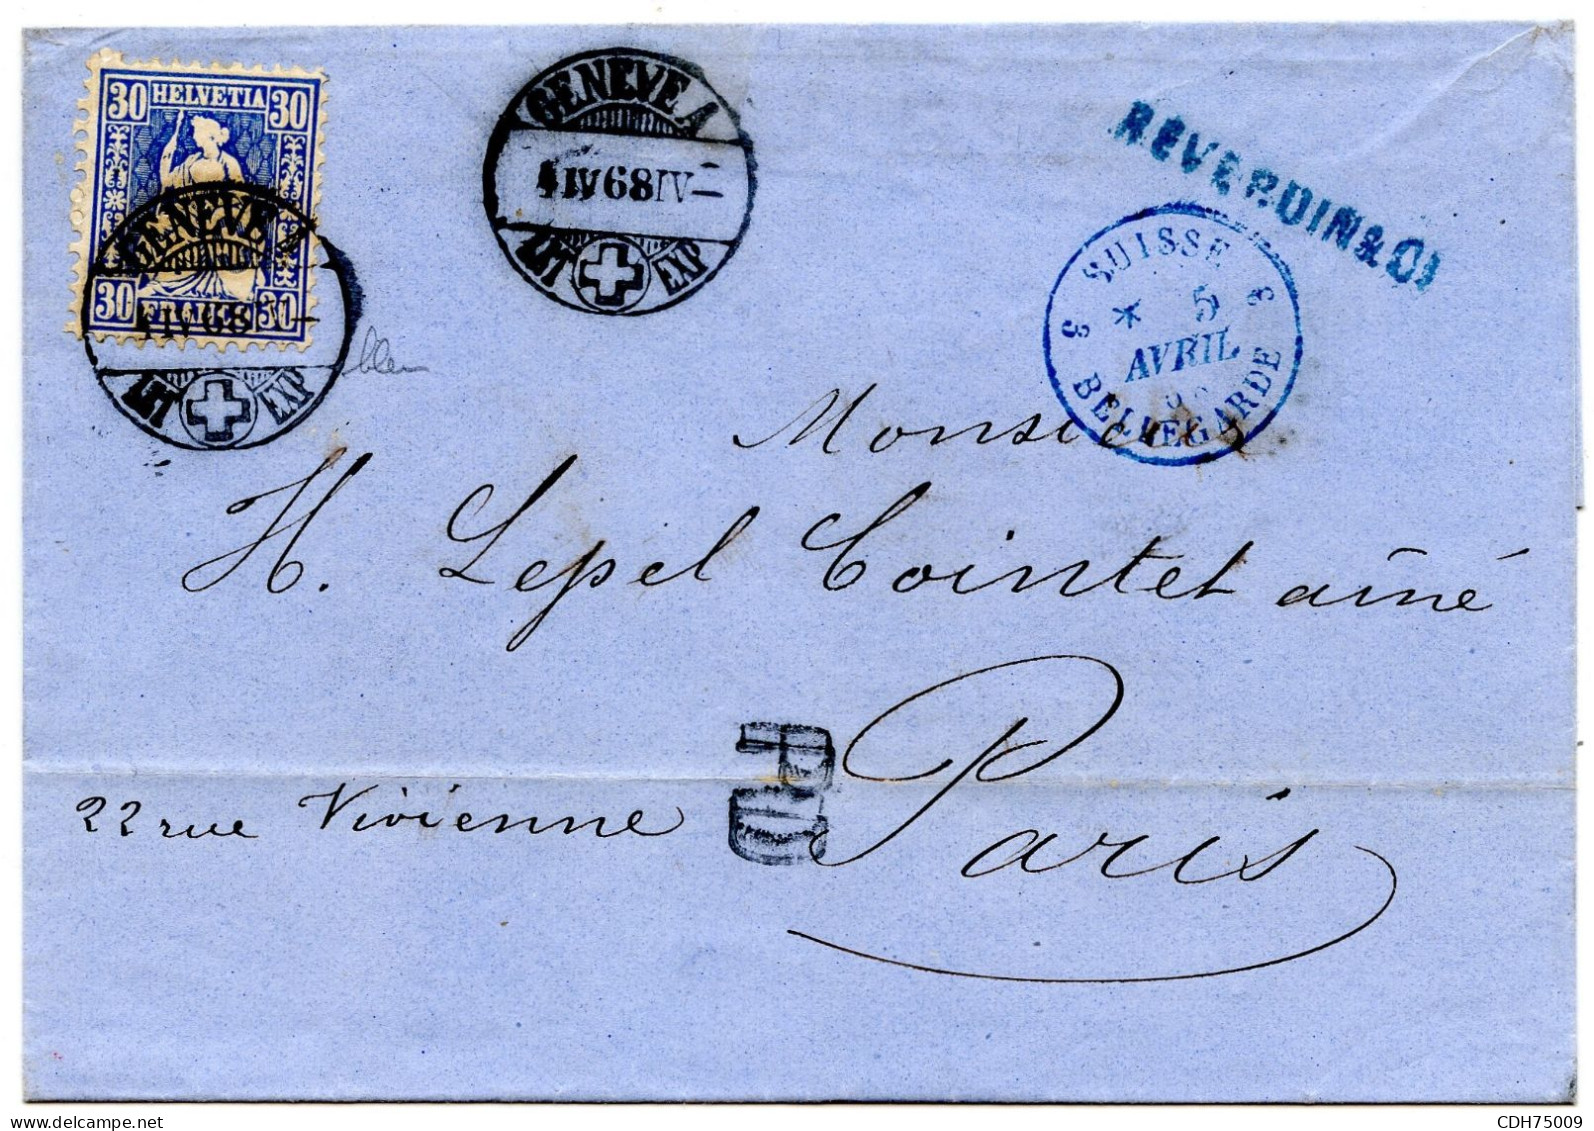 30 HELVETIA 30
30 FRANCO 30
GENEVE A
4 IV 68 IV-
LET EXP
GENEVE A
4 IV 68 IV-
LET EXP
REVERDIN & CI
SUISSE
3 * 5 3
AVRIL
68
BELLEGARDE
bleu
Monsieur
H. Lepel Cointet aîné
Paris
22 rue Vivienne
PD
CDH75009